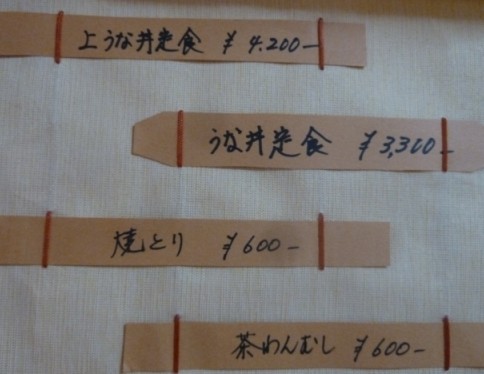 上うな丼定食 ¥4.200-
うな丼定食 ¥3,300-
焼とり ¥600-
茶わんむし ¥600-